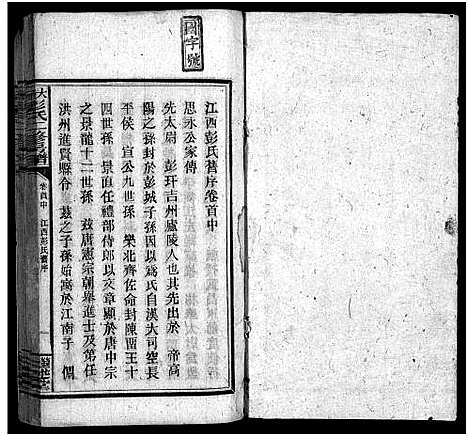 字號
江西彭氏舊序卷首中
思永公家傳
先太尉 彭玕吉州廬陵人也其先出於 帝高
陽之孫封於彭城子孫因以爲氏自漢大司空長
平侯 宣公九世孫 樂北齊佐命封陳畱王十
四世孫 景直任禮部侍郎以文章顯於唐中宗
之景龍十二世孫 茲唐憲宗朝舉進士及第任
洪州進賢縣令 茲之子孫始寓於江南子 倜
卷首中 江西彭氏舊序 一